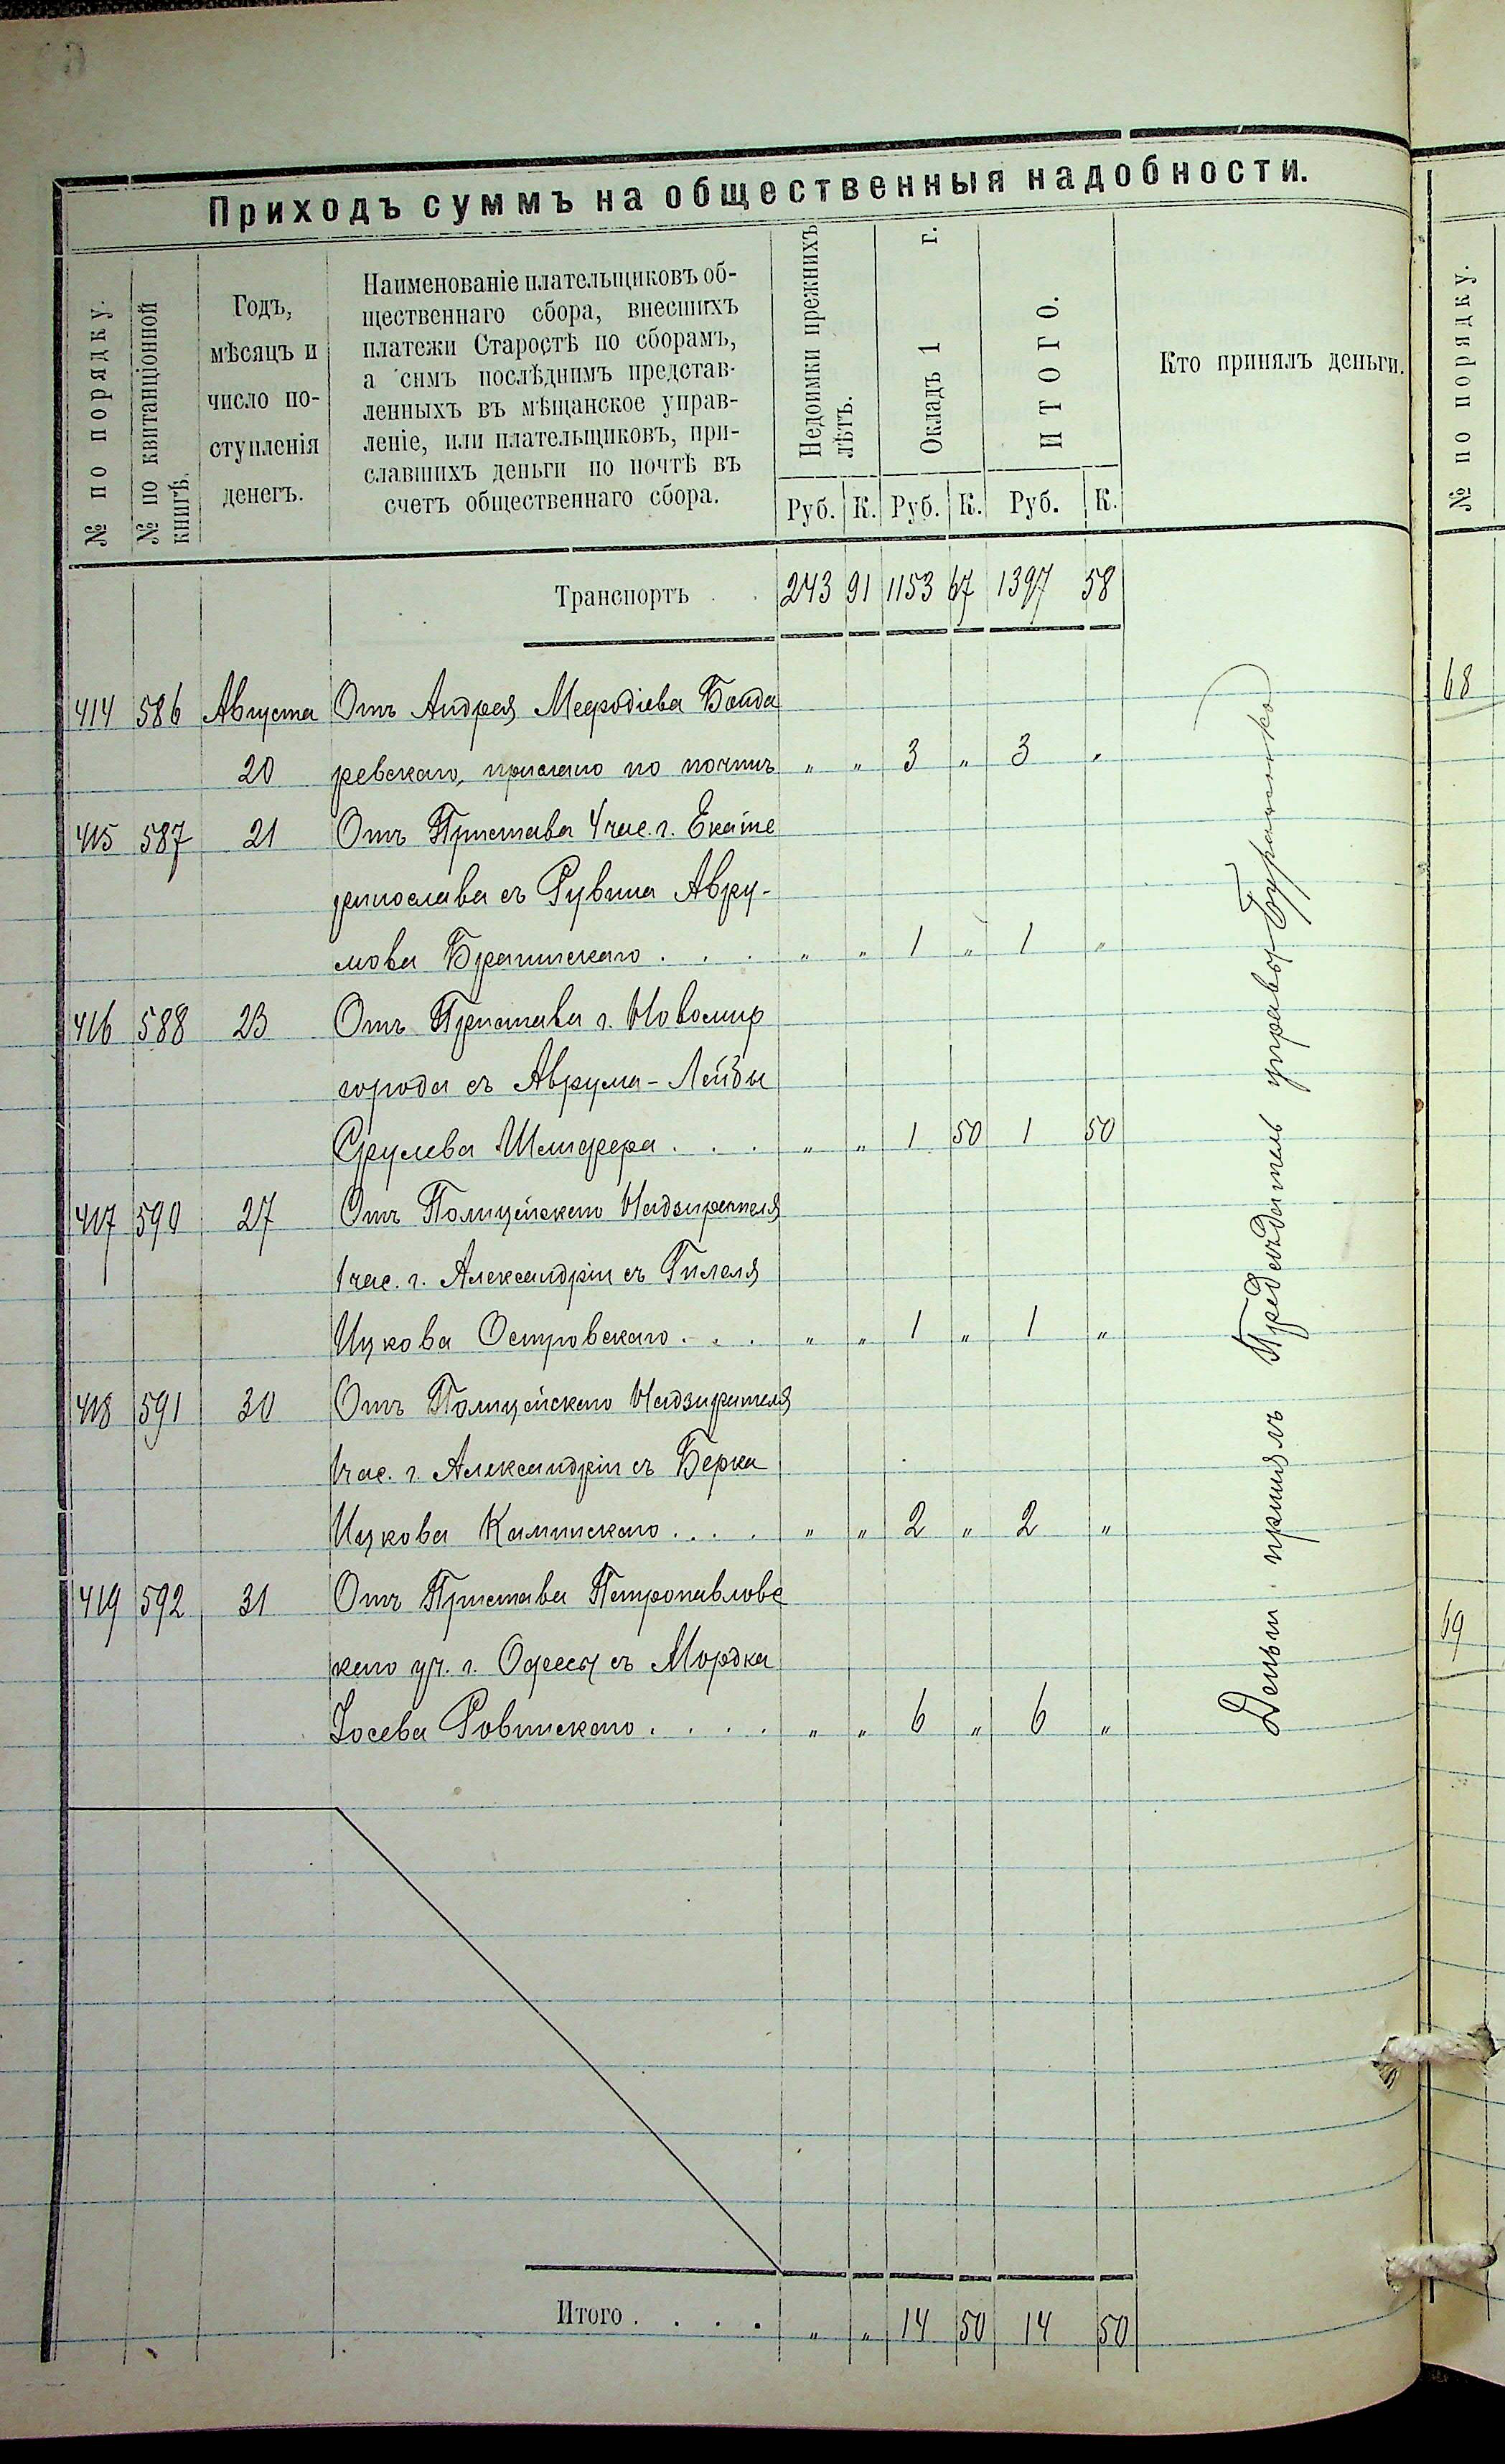 Приходъ суммъ на общественныя надобности.
№ по порядку.
№ по квитанціонной
книгѣ.
Годъ,
мѣсяцъ и
число по-
ступленія
денегъ.
Наименованіе плательщиковъ об-
щественнаго сбора, внесшихъ
платежи Старостѣ по сборамъ,
а симъ послѣднимъ представ-
ленныхъ въ мѣщанское управ-
леніе, или плательщиковъ, при-
славшихъ деньги по почтѣ въ
счетъ общественнаго сбора.
Недоимки прежнихъ
лѣтъ.
Окладъ 1 г.
ИТОГО.
Кто принялъ деньги.
Руб. К. Руб. К. Руб. К.
Транспортъ . . 243 91 1153 67 1397 58
414 586 Августа Отъ Андрея Мефодіева Бонда
20 ревскаго, прислано по почтѣ „ „ 3 „ 3 „
415 587 21 Отъ Пристава 4 час. г. Екате
ринослава съ Рувина Авру-
мова Брагинскаго . . . „ „ 1 „ 1 „
416 588 23 Отъ Пристава г. Новомир
города съ Аврума-Лейзы
Срулева Шмифера . . . „ „ 1 50 1 50
417 590 27 Отъ Полицейскаго Надзирателя
1 час. г. Александріи съ Гилеля
Ицкова Островскаго . . . „ „ 1 „ 1 „
418 591 30 Отъ Полицейскаго Надзирателя
1 час. г. Александріи съ Берка
Ицкова Каминскаго . . . . „ „ 2 „ 2 „
419 592 31 Отъ Пристава Петропавловс
каго уч. г. Одессы съ Мордка
Іосева Ровинскаго . . . . „ „ 6 „ 6 „
Деньги принялъ Предсѣдатель управы
Итого . . . . „ „ 14 50 14 50
№ по порядку.
68
69